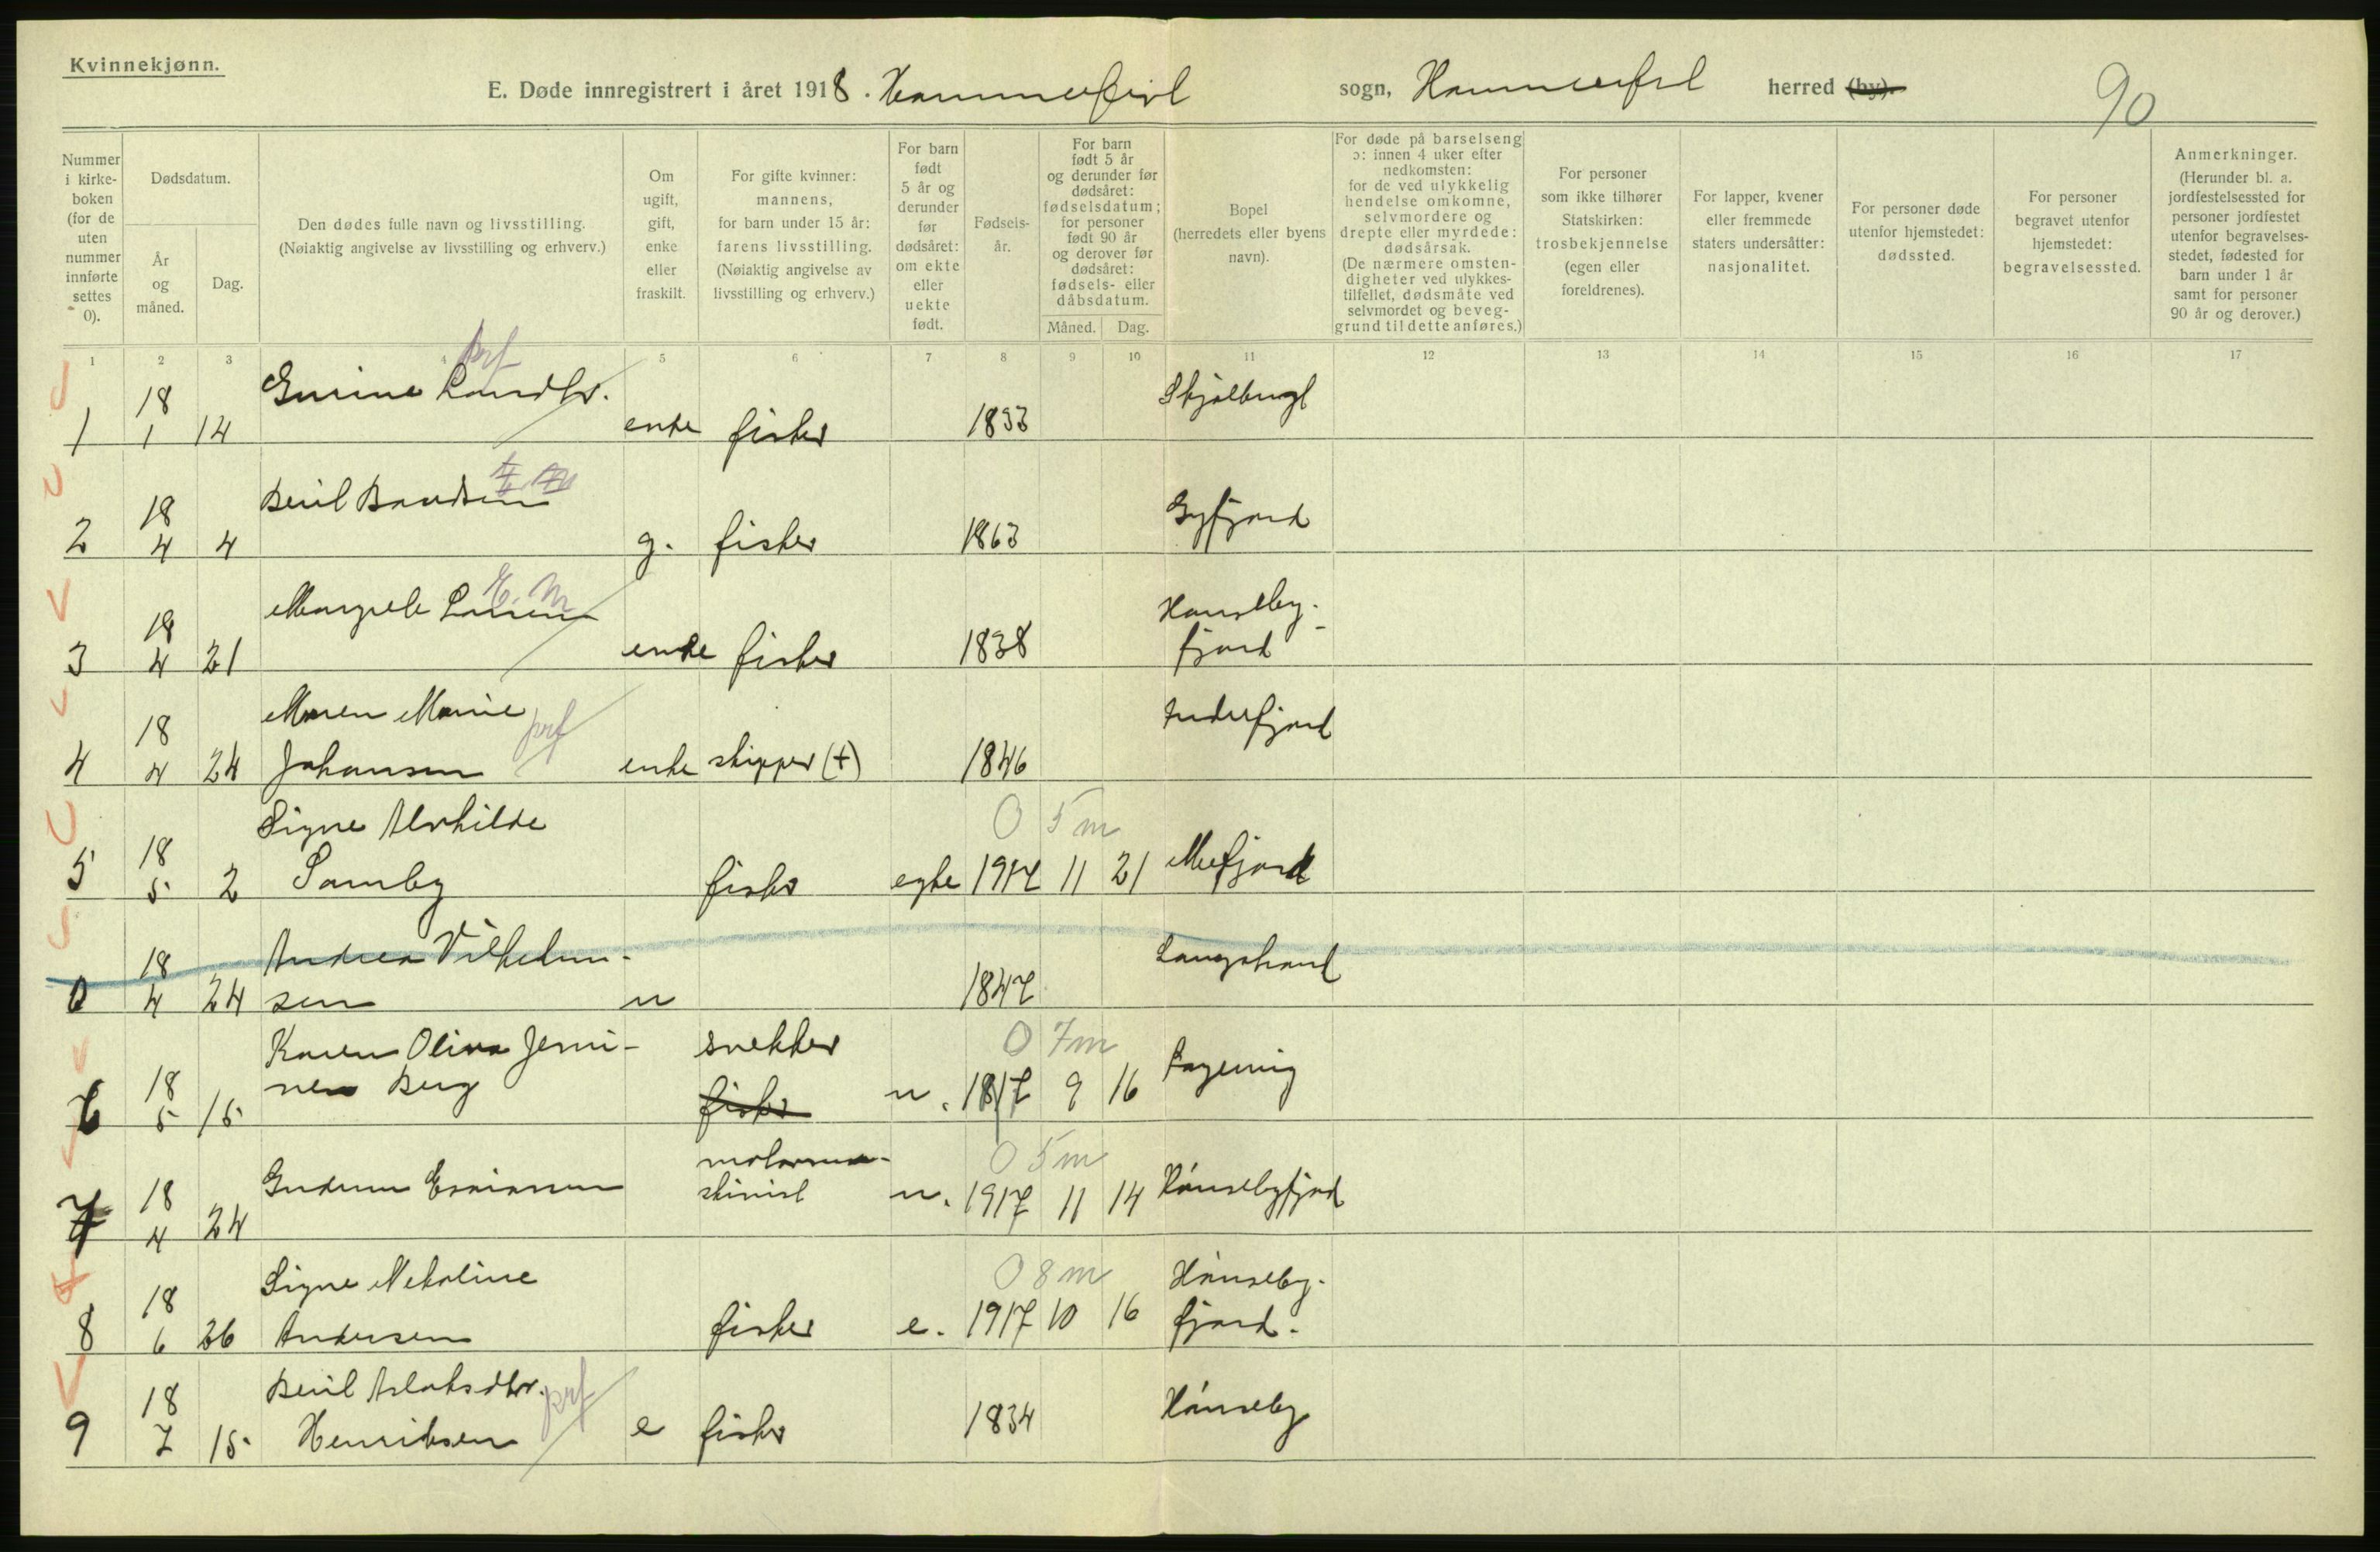 Kvinnekjønn.
E. Døde innregistrert i året 1918. Hammerfest sogn, Hammerfest herred (by).
90
Nummer i kirkeboken (for de uten nummer innførte settes 0).
Dødsdatum.
År og måned.
Dag.
Den dødes fulle navn og livsstilling.
(Nøiaktig angivelse av livsstilling og erhverv.)
Om ugift, gift, enke eller fraskilt.
For gifte kvinner: mannens, for barn under 15 år: farens livsstilling. (Nøiaktig angivelse av livsstilling og erhverv.)
For barn født 5 år og derunder før dødsåret: om ekte eller uekte født.
Fødselsår.
For barn født 5 år og derunder før dødsåret: fødselsdatum; for personer født 90 år og derover før dødsåret: fødsels- eller dåbsdatum.
Måned. Dag.
Bopel (herredets eller byens navn).
For døde på barselseng ɔ: innen 4 uker efter nedkomsten: for de ved ulykkelig hendelse omkomne, selvmordere og drepte eller myrdede: dødsårsak. (De nærmere omstendigheter ved ulykkestilfellet, dødsmåte ved selvmordet og beveggrund til dette anføres.)
For personer som ikke tilhører Statskirken: trosbekjennelse (egen eller foreldrenes).
For lapper, kvener eller fremmede staters undersåtter: nasjonalitet.
For personer døde utenfor hjemstedet: dødssted.
For personer begravet utenfor hjemstedet: begravelsessted.
Anmerkninger. (Herunder bl. a. jordfestelsessted for personer jordfestet utenfor begravelsesstedet, fødested for barn under 1 år samt for personer 90 år og derover.)
1 2 3 4 5 6 7 8 9 10 11 12 13 14 15 16 17
1 18 1 14 enke fisker 1833
2 18 4 4 Beril g. fisker 1863
3 18 4 21 enke fisker 1838 Hønseby-
fjord
4 18 4 24 Maren Marie
Johansen enke skipper (+) 1846 Indrefjord
0 5 m
5 18 5 2 Signe Alvhilde
Samby fisker egte 1917 11 21 Mefjord
0 18 4 24 Andrea Vilhelm-
sen u 1847 Langstrand
0 7 m
6 18 5 15 Karen Oliva Jenni- snekker
nen Berg fisker u. 1917 9 16
0 5 m
7 18 4 24 Gudrun Esaiassen motorma-
skinist u. 1917 11 14 Hønsebyfjord
0 8 m
8 18 6 26 Signe Nekoline
Andersen fisker e. 1917 10 16 Hønseby-
fjord.
9 18 7 15 Beril Aslaksdtr.
Henriksen e fisker 1834 Hønseby